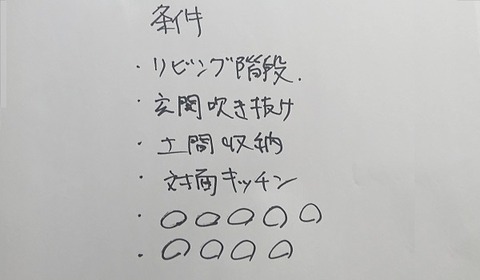 条件
・リビング階段.
・玄関吹き抜け
・土間収納
・対面キッチン
・○○○○○
・○○○○